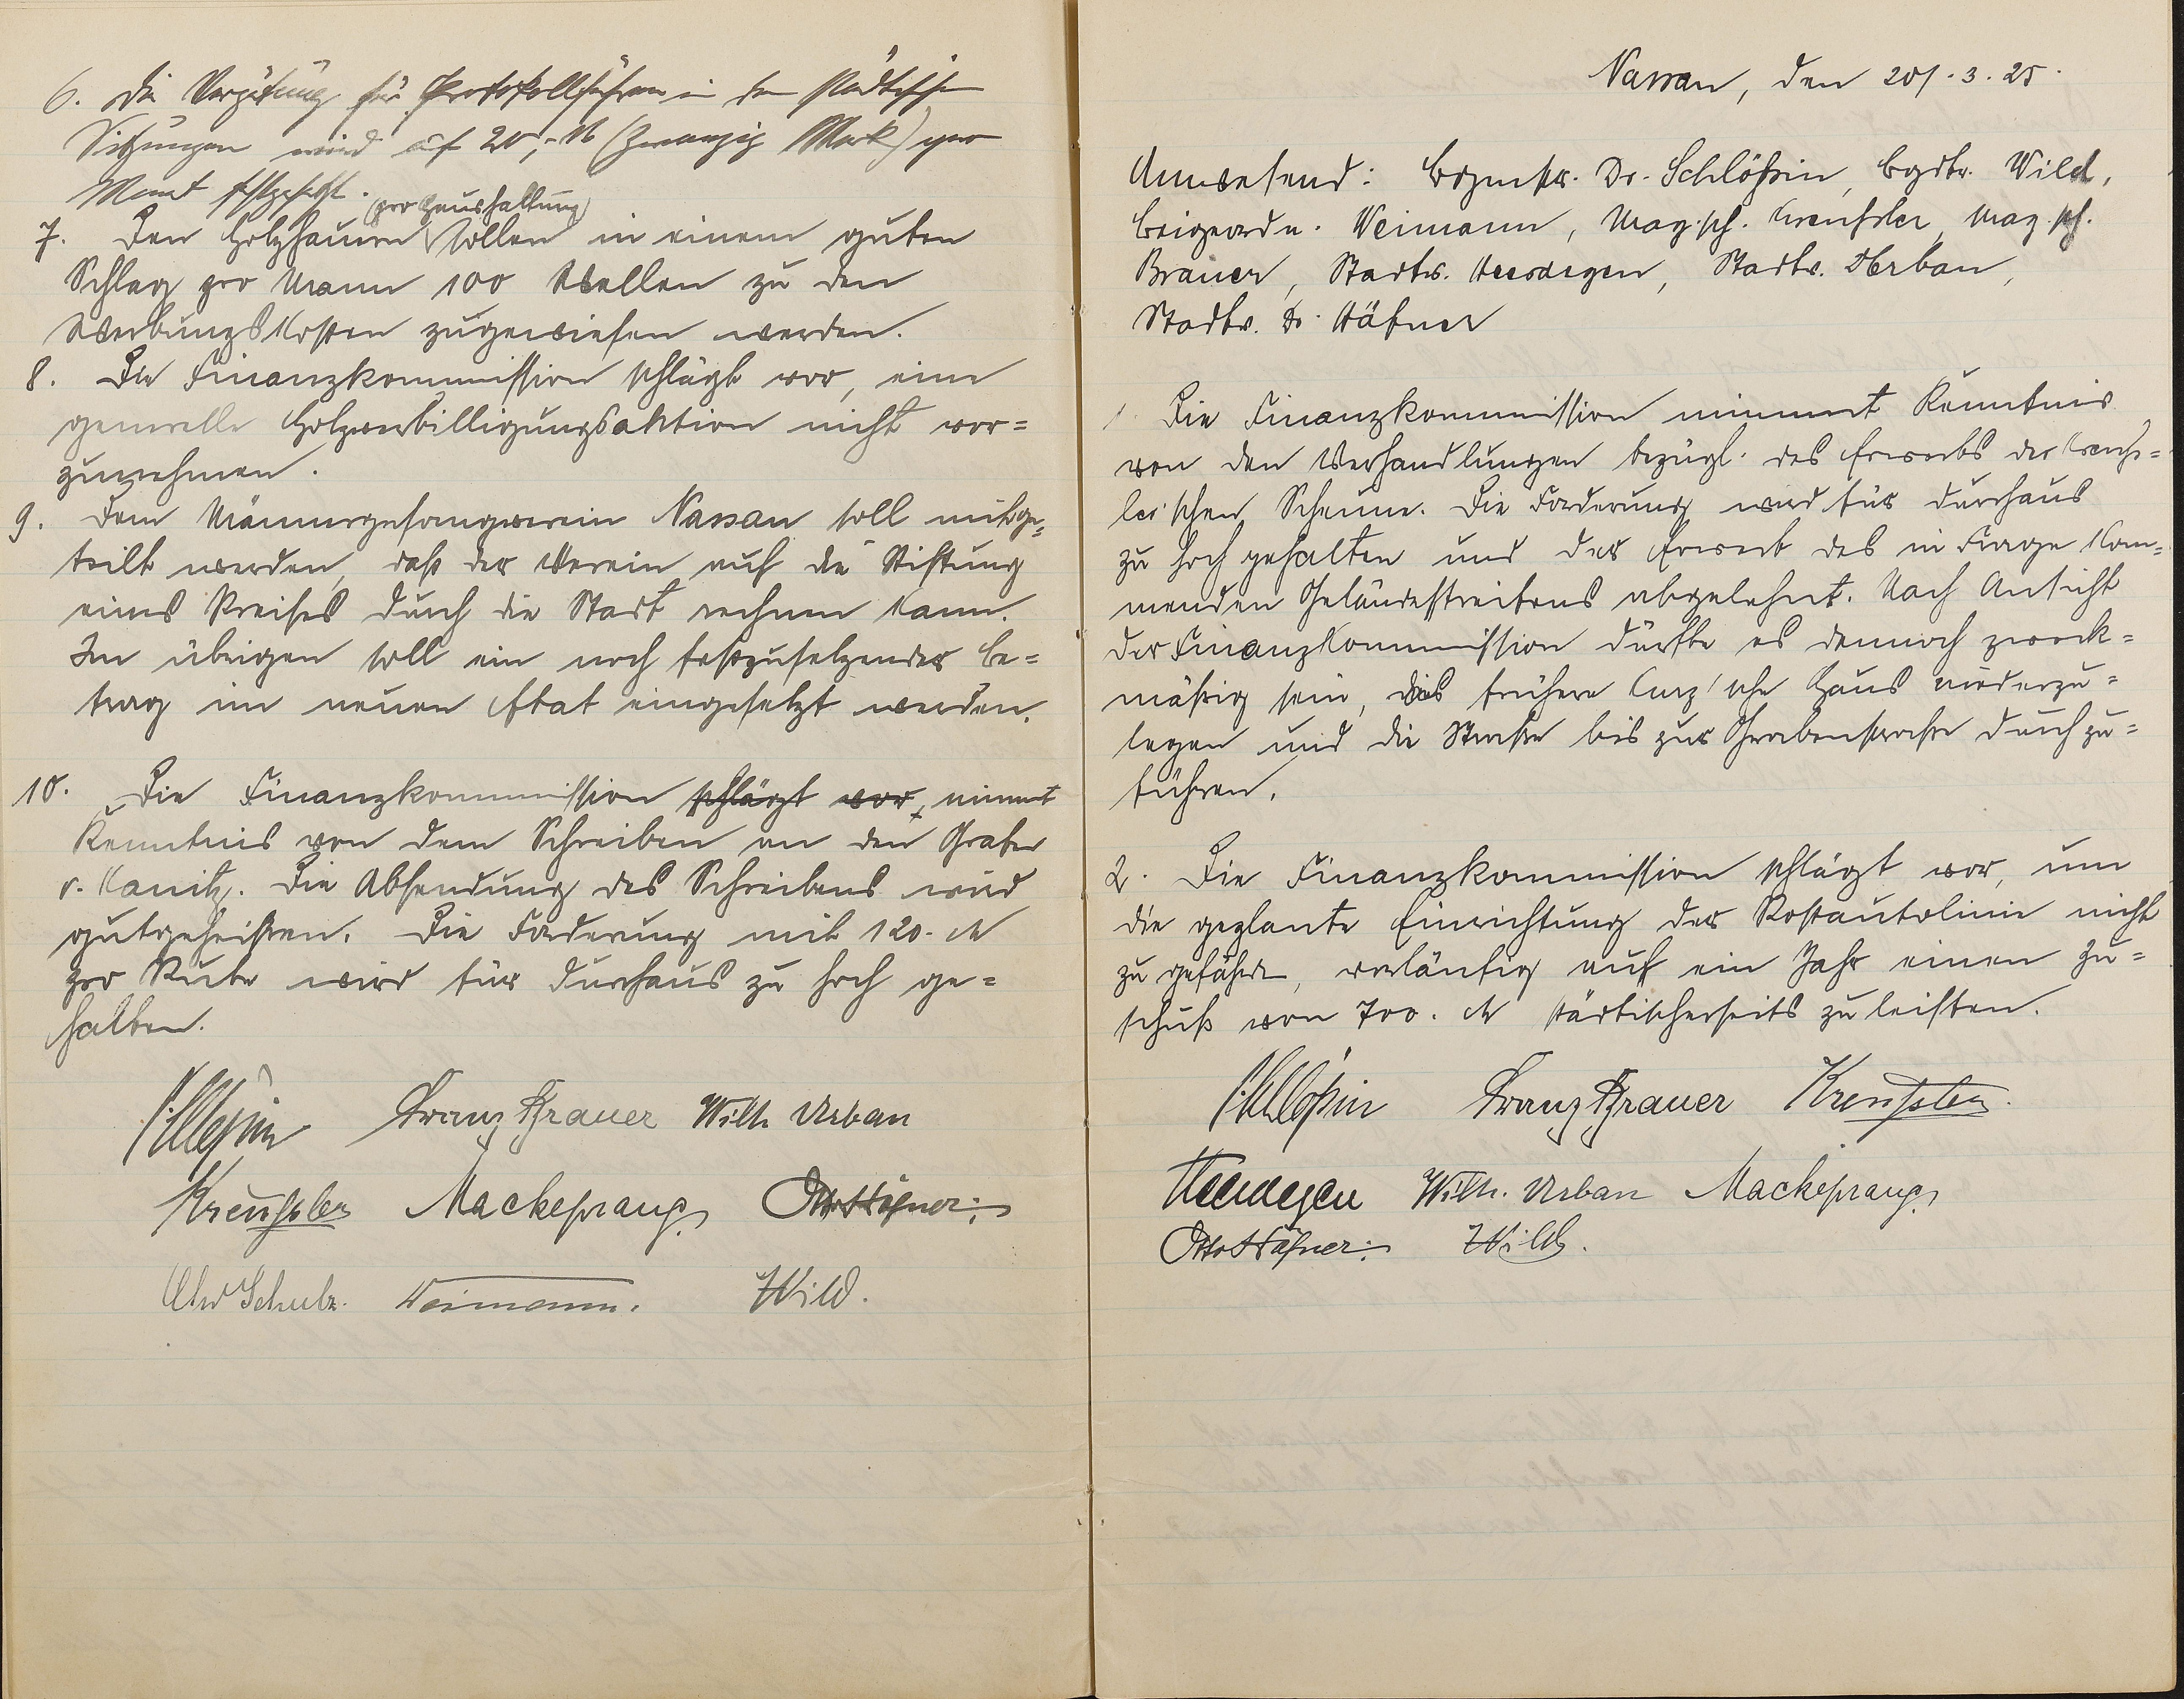 6. Die Vergütung für Protokollführen in den städtischen
Sitzungen wird auf 20,- M (Zwanzig Mark) pro
Monat festgesetzt.
(pro Haushaltung)
7. Den Holzhauern sollen in einem guten
Schlag pro Mann 100 Wellen zu den
Werbungskosten zugewiesen werden.
8. Die Finanzkommission schlägt vor, eine
generelle Holzverbilligungsaktion nicht vor=
zunehmen.
9. Dem Männergesangverein Nassau soll mitge=
teilt werden, daß der Verein auf die Stiftung
eines Preises durch die Stadt rechnen kann.
Im übrigen soll ein noch festzusetzender Be=
trag im neuen Etat eingesetzt werden.
10. Die Finanzkommission schlägt vor, nimmt
Kenntnis von dem Schreiben an den Grafen
v. Kanitz. Die Absendung des Schreibens wird
gutgeheißen. Die Forderung mit 120.- M
pro Rute wird für durchaus zu hoch ge=
halten.
Schlössin Franz Brauer Wilh. Urban
Kreuszler Mackeprang Otto Häfner
Schulz. Weimann. Wild.
Nassau, den 201.3.25.
Anwesend: Bgmstr. Dr. Schlößin, Bgdtr. Wild,
Beigeordn. Weimann, Mag.sch. Kreußler, Mag.sch.
Brauer, Stadtv. Heerdegen, Stadtv. Urban,
Stadtv. Dr. Häfner
1. Die Finanzkommission nimmt Kenntnis
von den Verhandlungen bezügl. des Erwerbs der Kreuß=
ler'schen Scheune. Die Forderung wird für durchaus
zu hoch gehalten und der Erwerb des in Frage kom=
menden Geländestreifens abgelehnt. Nach Ansicht
der Finanzkommission dürfte es dennoch zweck=
mäßig sein, das frühere Kurz'sche Haus niederzu=
legen und die Straße bis zur Grabenstraße durchzu=
führen.
2. Die Finanzkommission schlägt vor, um
die geplante Einrichtung der Postautolinie nicht
zu gefährden, vorläufig auf ein Jahr einen Zu=
schuß von 700. M städtischerseits zu leisten.
Schlößin Franz Brauer Kreuszler.
Heerdegen Wilh. Urban Mackeprang
Otto Häfner Wild.